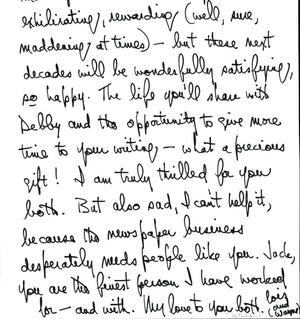 exhilirating, rewarding (well, sure,
maddening at times) — but these next
decades will be wonderfully satisfying,
so happy. The life you'll share with
Debby and the opportunity to give more
time to your writing — what a precious
gift! I am truly thrilled for you
both. But also sad, I can't help it,
because the newspaper business
desperately needs people like you. Jack,
you are the finest person I have worked
for — and with. My love to you both.
(and Wayne)